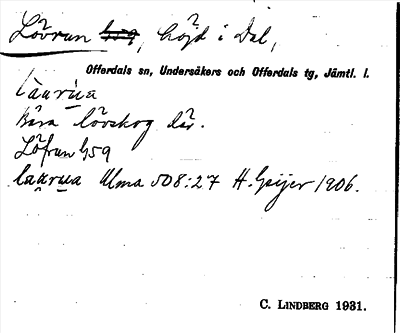 Lövrun 459, höjd i Dal,
Offerdals sn, Undersåkers och Offerdals tg, Jämtl. l.
Bara lövskog där.
Löfrun 459
Ulma 508:27 H. Geijer 1906.
C. LINDBERG 1931.